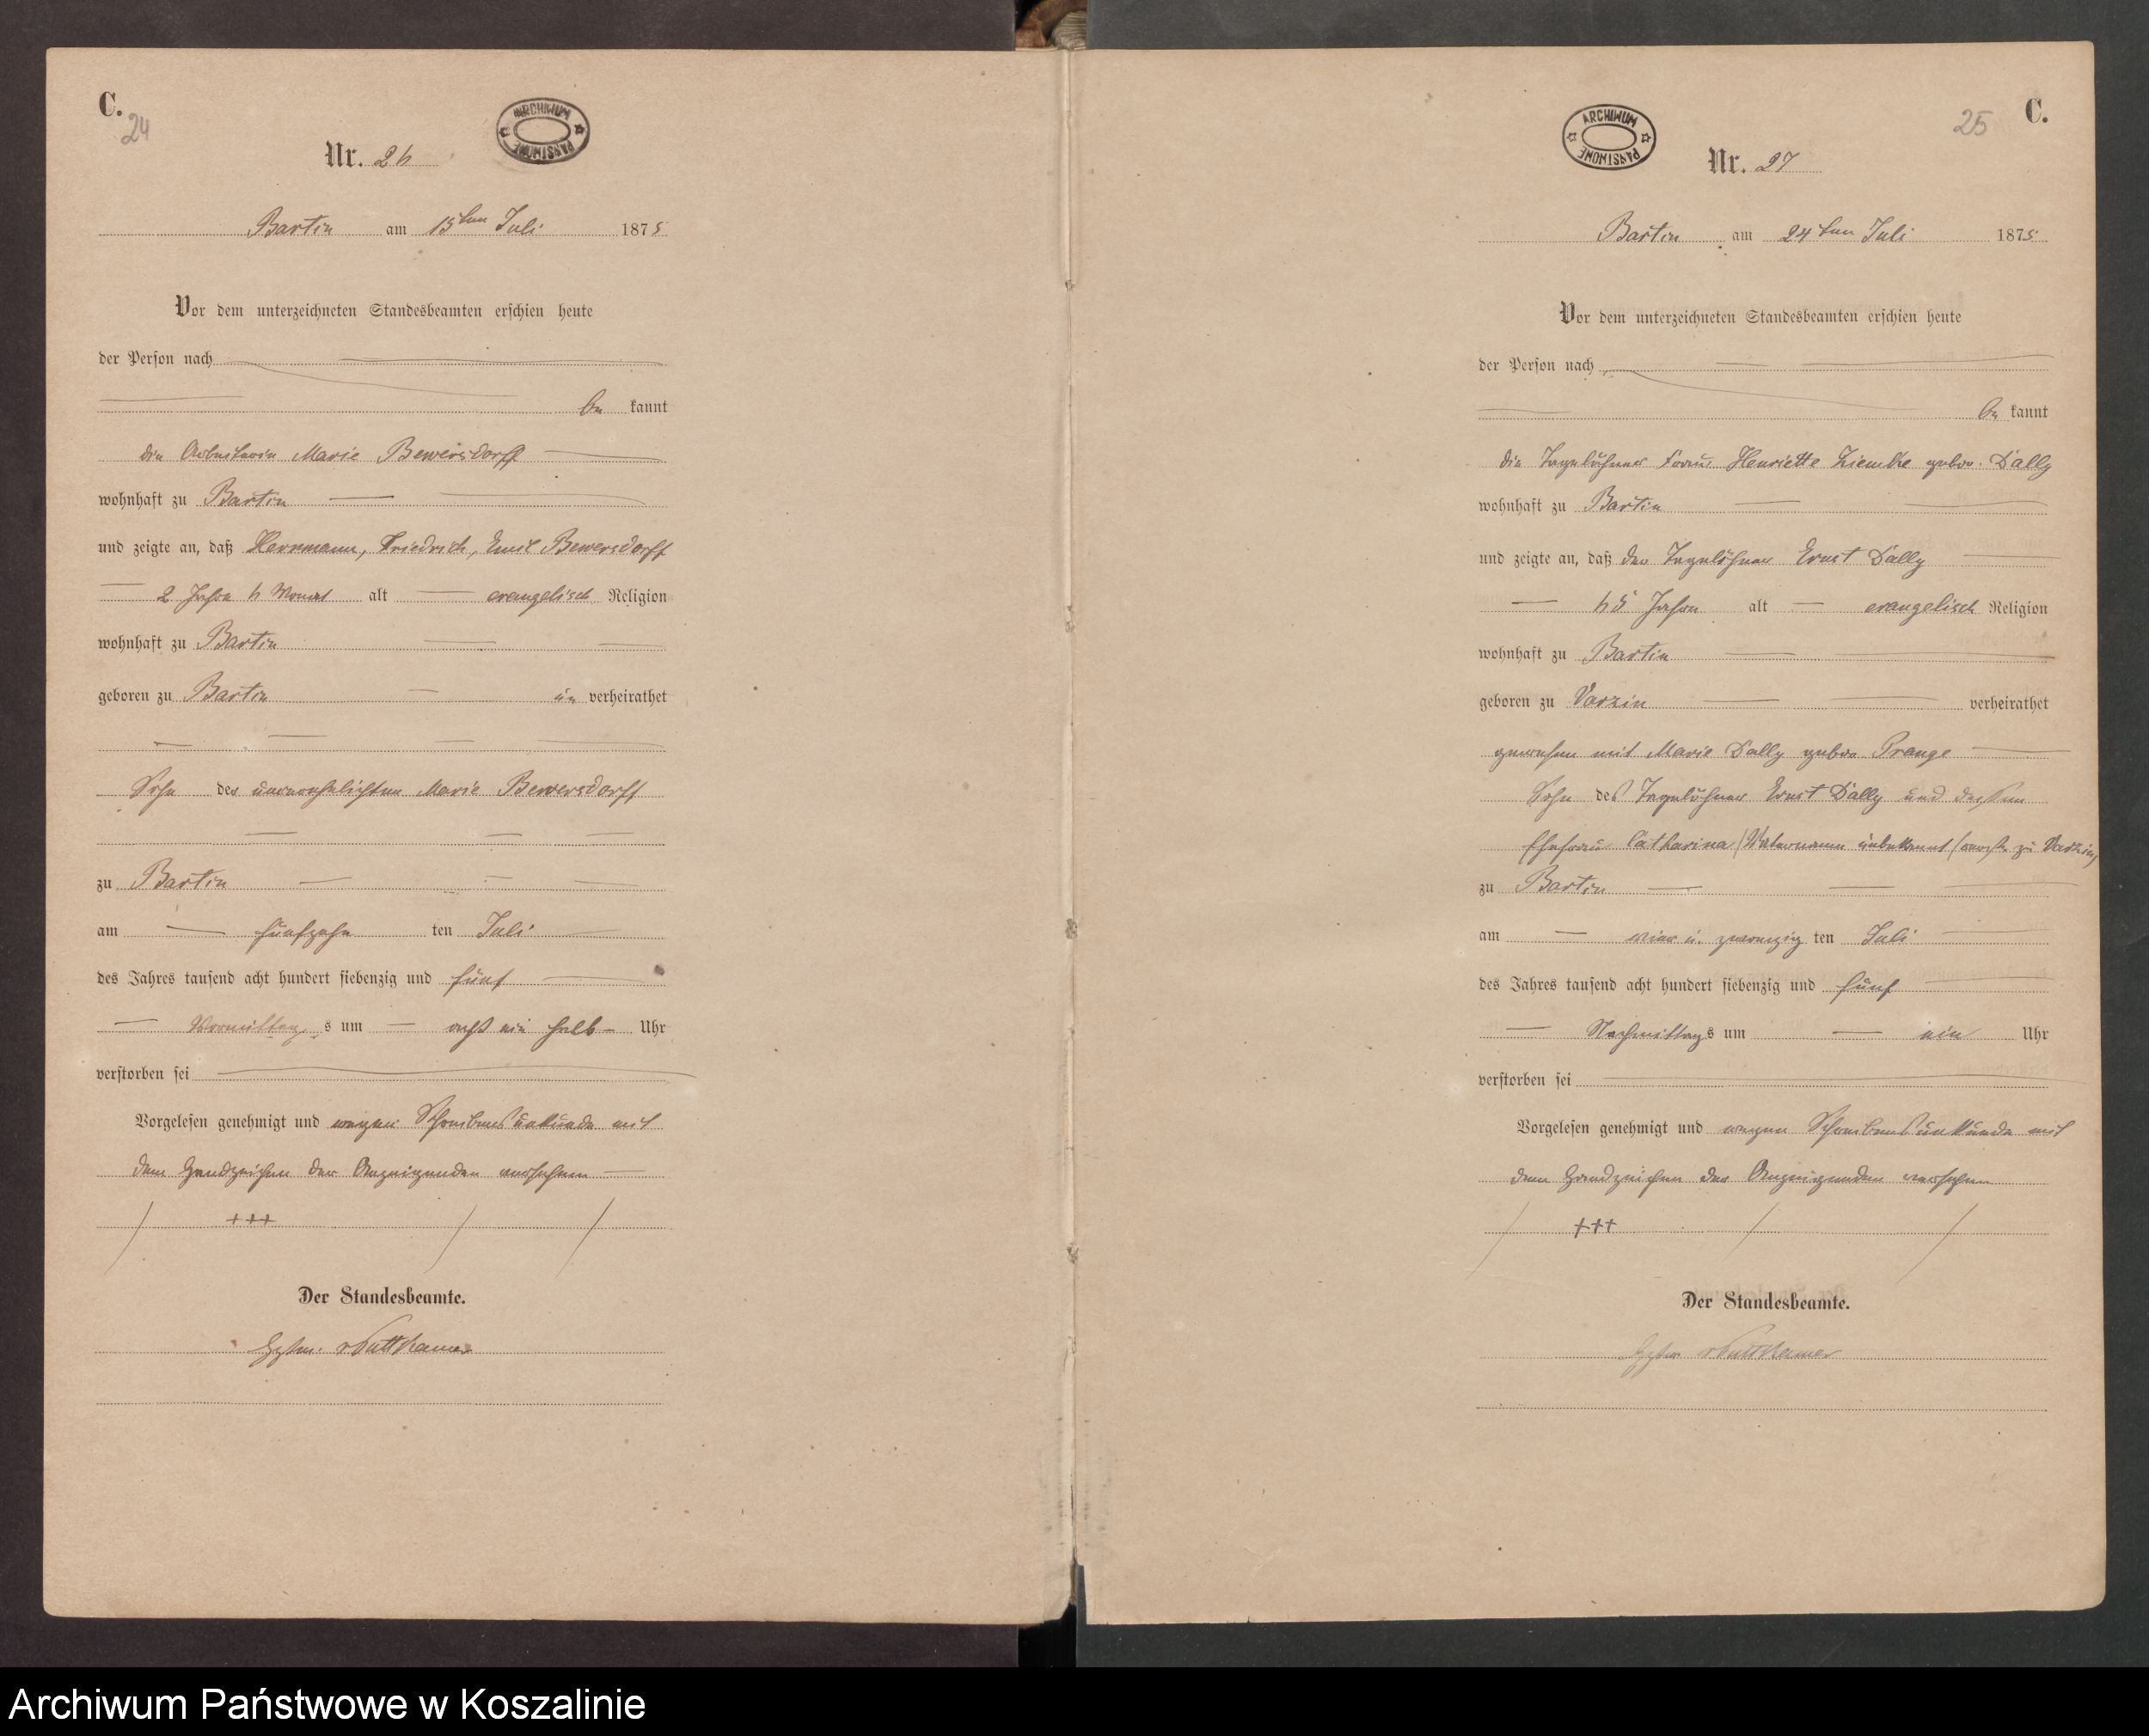 C.
24
ARCHIWUM PAŃSTWOWE
Nr. 26
Bartin am 15ten Juli 1875
Vor dem unterzeichneten Standesbeamten erschien heute
der Person nach
be kannt
die Arbeiterin Marie Bewersdorff
wohnhaft zu Bartin
und zeigte an, daß Herrmann, Friedrich, Emil Bewersdorff
2 Jahre 6 Monat alt evangelisch Religion
wohnhaft zu Bartin
geboren zu Bartin un verheirathet
Sohn der unverehelichten Marie Bewersdorff
zu Bartin
am fünfzehn ten Juli
des Jahres tausend acht hundert siebenzig und fünf
Vormittag s um acht ein halb Uhr
verstorben sei
Vorgelesen genehmigt und wegen Schreibensunkunde mit
dem Handzeichen der Anzeigenden versehen
+++
Der Standesbeamte.
vPuttkamer
25
C.
ARCHIWUM PAŃSTWOWE
Nr. 27
Bartin am 24ten Juli 1875
Vor dem unterzeichneten Standesbeamten erschien heute
der Person nach
be kannt
die Tagelöhner Frau Henriette Ziemke gebor. Dally
wohnhaft zu Bartin
und zeigte an, daß der Tagelöhner Ernst Dally
65 Jahre alt evangelisch Religion
wohnhaft zu Bartin
geboren zu Varzin verheirathet
gewesen mit Marie Dally gebor Prange
Sohn des Tagelöhner Ernst Dally und dessen
Ehefrau Catharina /Vatername unbekannt/ zu Varzin,
zu Bartin
am vier u. zwanzig ten Juli
des Jahres tausend acht hundert siebenzig und fünf
Nachmittags um ein Uhr
verstorben sei
Vorgelesen genehmigt und wegen Schreibensunkunde mit
dem Handzeichen der Anzeigenden versehen
+++
Der Standesbeamte.
vPuttkamer
Archiwum Państwowe w Koszalinie